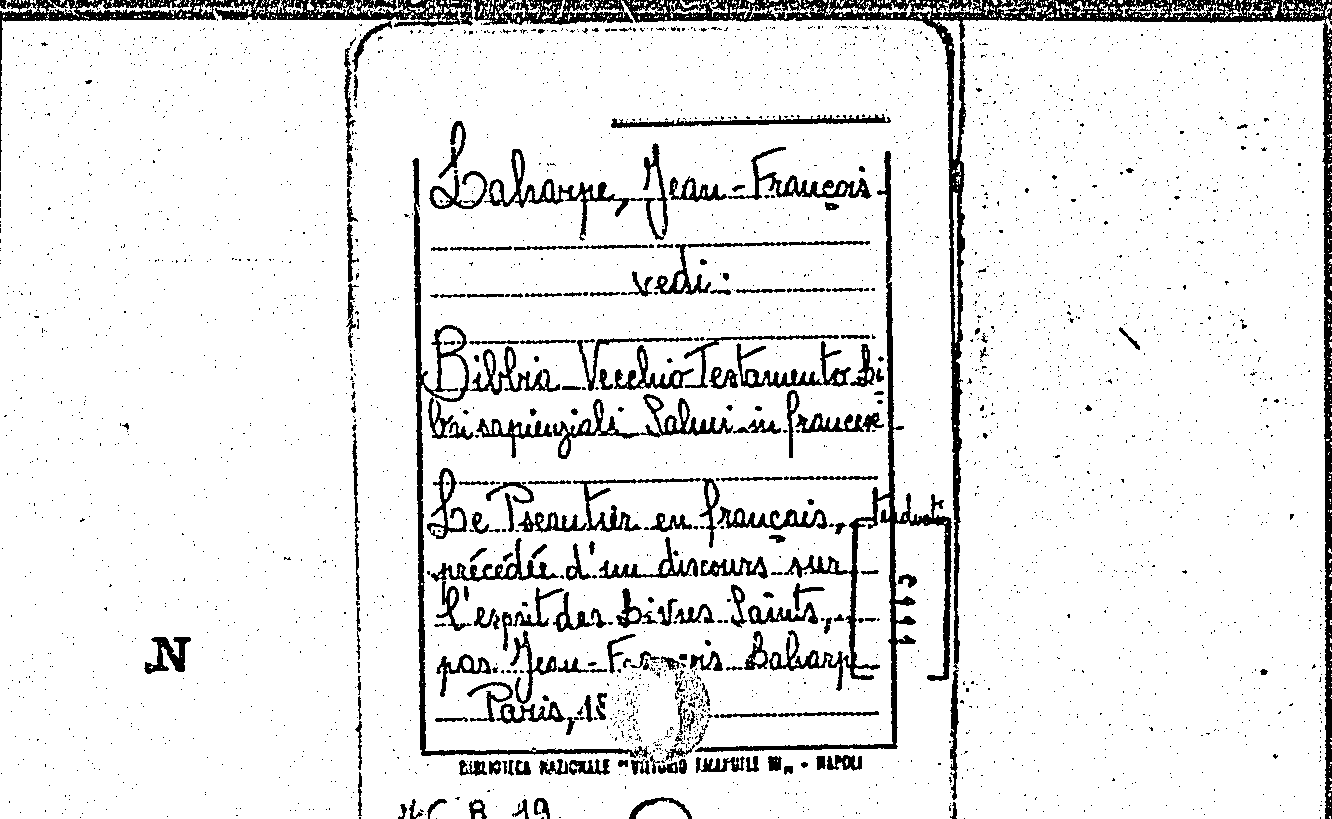 Laharpe, Jean-François
vedi:
Bibbia Vecchio Testamento Li
bri sapienziali Salmi in francese
Le Pseautier en français, traducti
précédée d'un discours sur
l'esprit des Livres Saints,
par Jean-François Laharpe
Paris, 18
BIBLIOTECA NAZIONALE "VITTORIO EMANUELE III" - NAPOLI
N